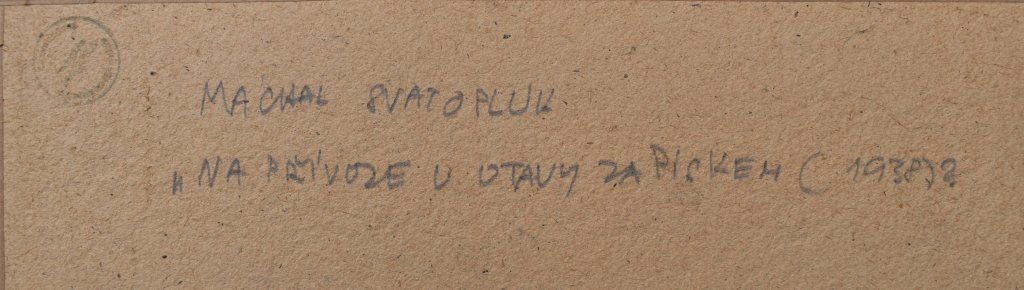 MACHAL SVATOPLUK
„NA PŘÍVOZE U OTAVY ZA PÍSKEM ( 1938)?